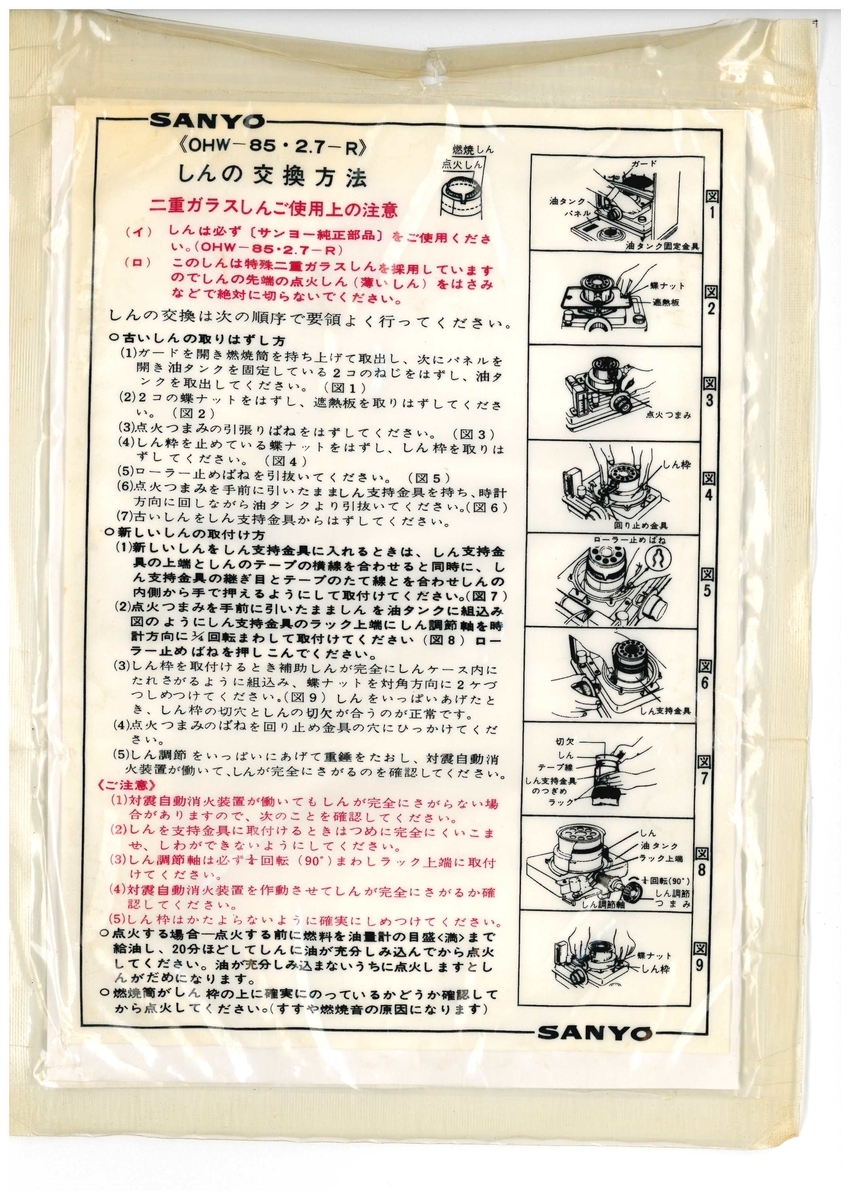 SANYO
《OHW－85・2.7－R》
しんの交換方法
二重ガラスしんご使用上の注意
(イ) しんは必ず〔サンヨー純正部品〕をご使用くださ
い。(OHW－85・2.7－R)
(ロ) このしんは特殊二重ガラスしんを採用しています
のでしんの先端の点火しん(薄いしん)をはさみ
などで絶対に切らないでください。
燃焼しん
点火しん
しんの交換は次の順序で要領よく行ってください。
○古いしんの取りはずし方
(1)ガードを開き燃焼筒を持ち上げて取出し、次にパネルを
開き油タンクを固定している2コのねじをはずし、油タ
ンクを取出してください。(図1)
(2)2コの蝶ナットをはずし、遮熱板を取りはずしてくださ
い。(図2)
(3)点火つまみの引張りばねをはずしてください。(図3)
(4)しん枠を止めている蝶ナットをはずし、しん枠を取りは
ずしてください。(図4)
(5)ローラー止めばねを引抜いてください。(図5)
(6)点火つまみを手前に引いたまましん支持金具を持ち、時計
方向に回しながら油タンクより引抜いてください。(図6)
(7)古いしんをしん支持金具からはずしてください。
○新しいしんの取付け方
(1)新しいしんをしん支持金具に入れるときは、しん支持金
具の上端としんのテープの横線を合わせると同時に、し
ん支持金具の継ぎ目とテープのたて線とを合わせしんの
内側から手で押えるようにして取付けてください。(図7)
(2)点火つまみを手前に引いたまましんを油タンクに組込み
図のようにしん支持金具のラック上端にしん調節軸を時
計方向に¼回転まわして取付けてください(図8)ロー
ラー止めばねを押しこんでください。
(3)しん枠を取付けるとき補助しんが完全にしんケース内に
たれさがるように組込み、蝶ナットを対角方向に2ケづ
つしめつけてください。(図9)しんをいっぱいあげたと
き、しん枠の切穴としんの切欠が合うのが正常です。
(4)点火つまみのばねを回り止め金具の穴にひっかけてくだ
さい。
(5)しん調節をいっぱいにあげて重錘をたおし、対震自動消
火装置が働いて、しんが完全にさがるのを確認してください。
《ご注意》
(1)対震自動消火装置が働いてもしんが完全にさがらない場
合がありますので、次のことを確認してください。
(2)しんを支持金具に取付けるときはつめに完全にくいこま
せ、しわができないようにしてください。
(3)しん調節軸は必ず¼回転(90°)まわしラック上端に取付
けてください。
(4)対震自動消火装置を作動させてしんが完全にさがるか確
認してください。
(5)しん枠はかたよらないように確実にしめつけてください。
○点火する場合―点火する前に燃料を油量計の目盛<満>まで
給油し、20分ほどしてしんに油が充分しみ込んでから点火
してください。油が充分しみ込まないうちに点火しますとし
んがだめになります。
○燃焼筒がしん枠の上に確実にのっているかどうか確認して
から点火してください。(すすや燃焼音の原因になります)
ガード
油タンク
パネル
油タンク固定金具
図1
蝶ナット
遮熱板
図2
点火つまみ
図3
しん枠
回り止め金具
図4
ローラー止めばね
図5
しん支持金具
図6
切欠
しん
テープ線
しん支持金具
のつぎめ
ラック
図7
しん
油タンク
ラック上端
¼回転(90°)
しん調節
つまみ
しん調節軸
図8
蝶ナット
しん枠
図9
SANYO